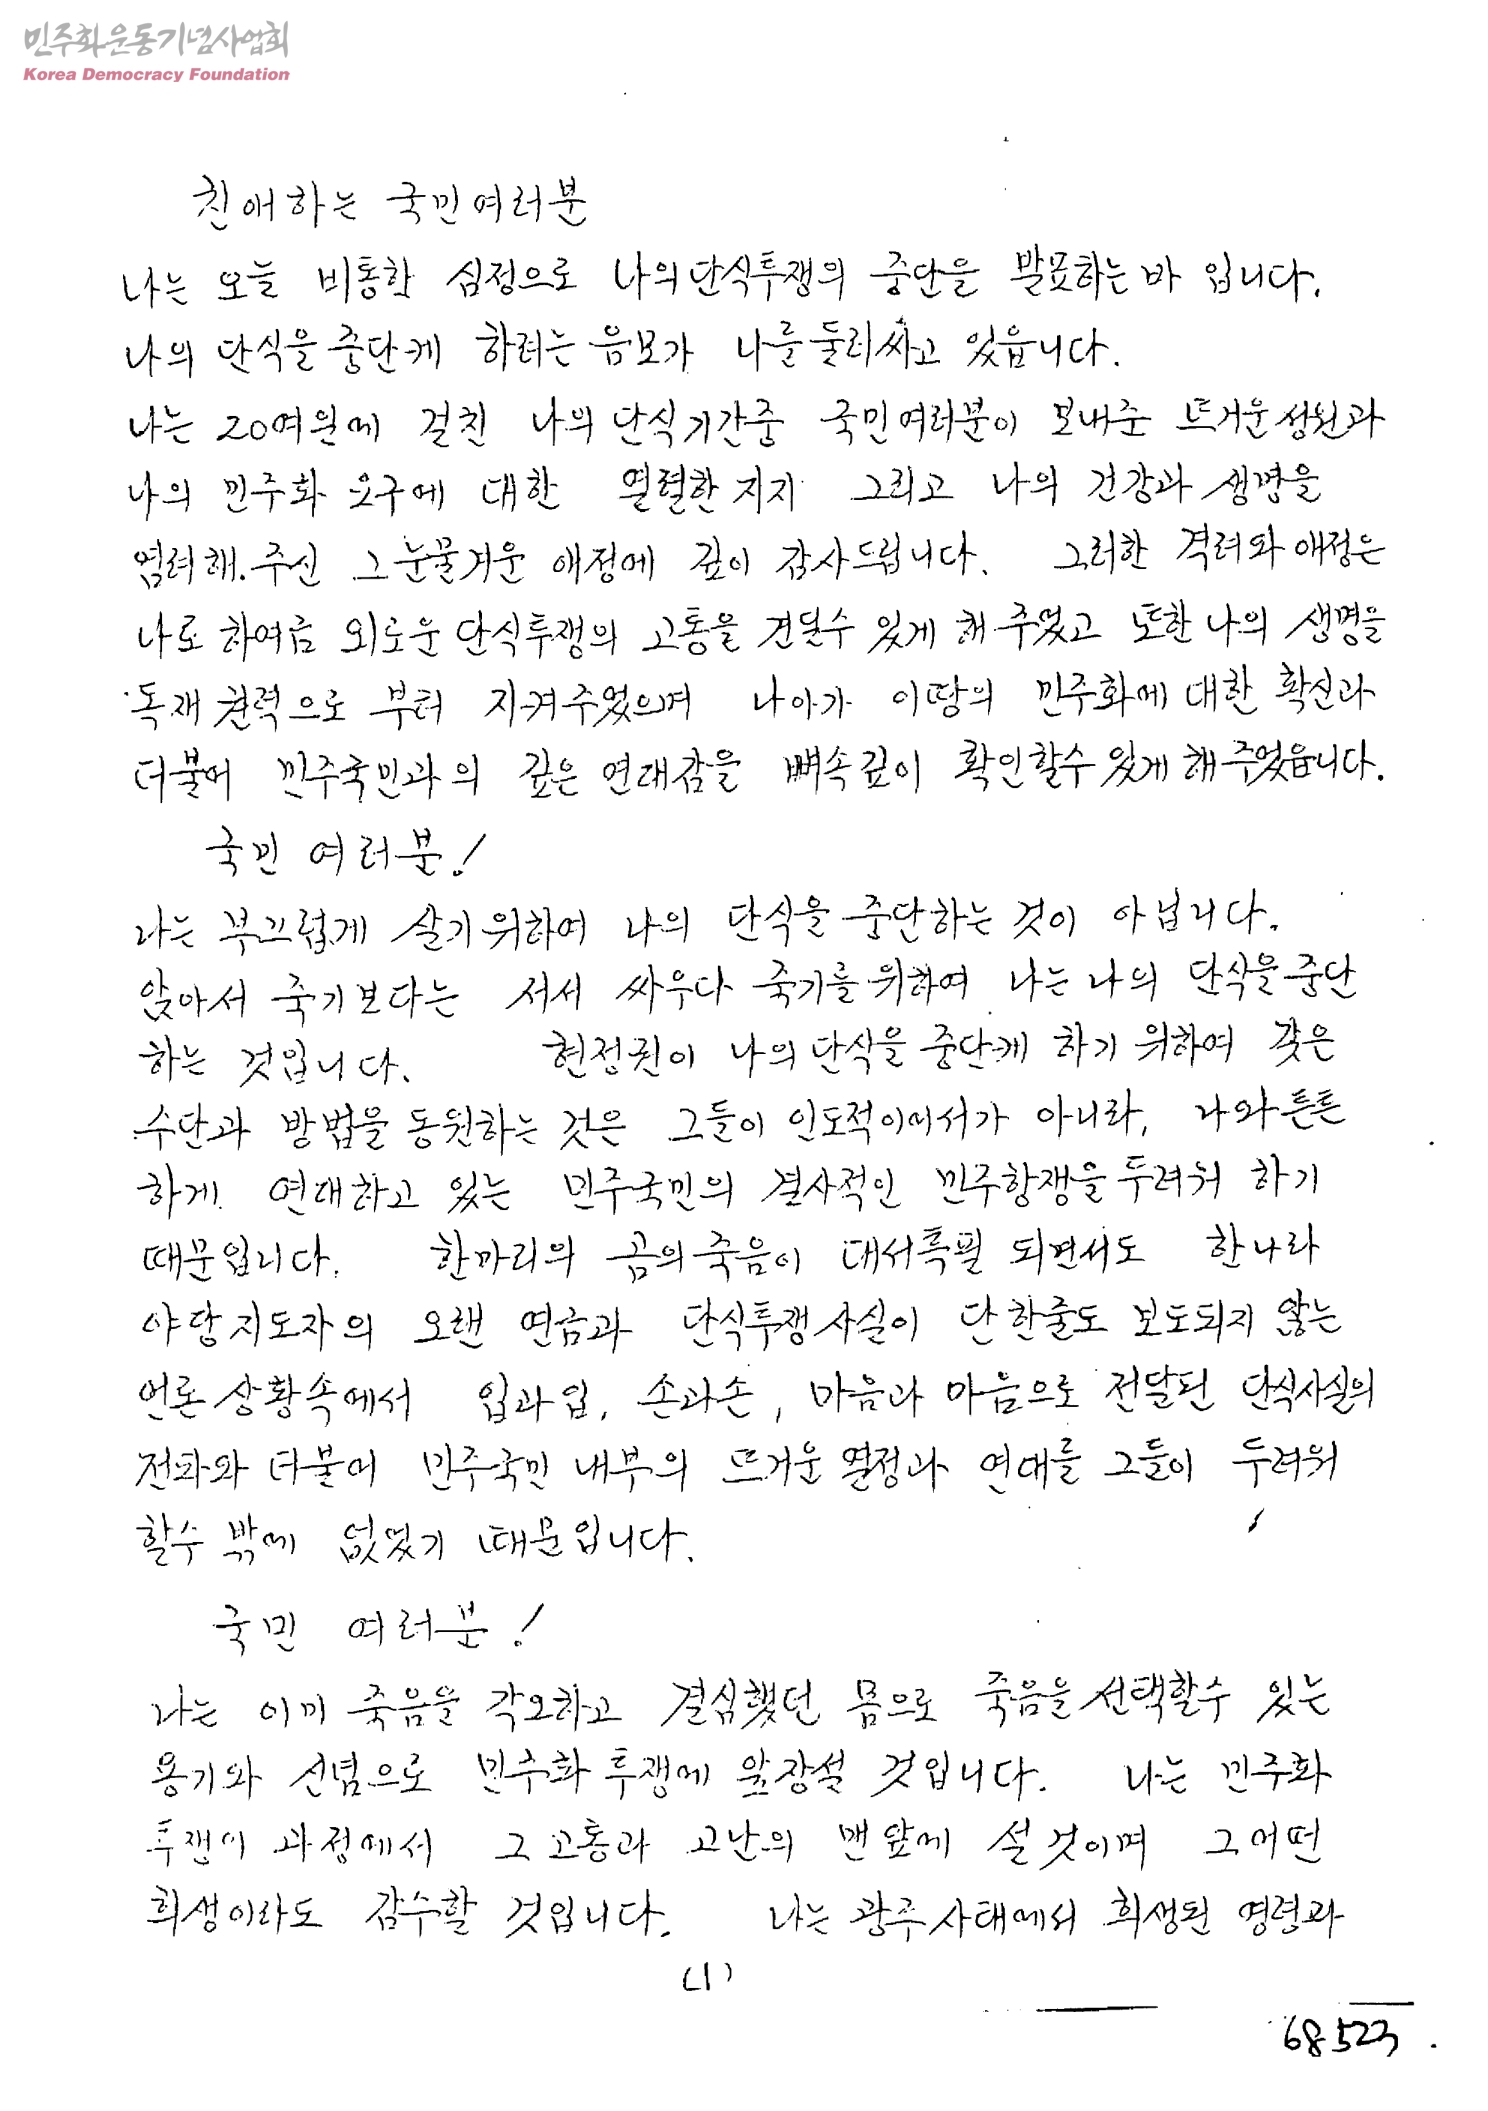 민주화운동기념사업회
Korea Democracy Foundation
친애하는 국민여러분
나는 오늘 비통한 심정으로 나의 단식투쟁의 중단을 발표하는 바 입니다.
나의 단식을 중단케 하려는 음모가 나를 둘러싸고 있읍니다.
나는 20여일에 걸친 나의 단식기간중 국민여러분이 보내준 뜨거운 성원과
나의 민주화 요구에 대한 열렬한 지지 그리고 나의 건강과 생명을
염려해.주신 그 눈물겨운 애정에 깊이 감사드립니다. 그러한 격려와 애정은
나로 하여금 외로운 단식투쟁의 고통을 견딜수 있게 해 주었고 또한 나의 생명을
독재 권력으로 부터 지켜주었으며 나아가 이땅의 민주화에 대한 확신과
더불어 민주국민과의 깊은 연대감을 뼈속 깊이 확인할수 있게 해 주었읍니다.
국민 여러분!
나는 부끄럽게 살기 위하여 나의 단식을 중단하는 것이 아닙니다.
앉아서 죽기보다는 서서 싸우다 죽기를 위하여 나는 나의 단식을 중단
하는 것입니다. 현정권이 나의 단식을 중단케 하기 위하여 갖은
수단과 방법을 동원하는 것은 그들이 인도적이어서가 아니라, 나와 튼튼
하게 연대하고 있는 민주국민의 결사적인 민주항쟁을 두려워 하기
때문입니다. 한마리의 곰의 죽음이 대서특필 되면서도 한나라
야당 지도자의 오랜 연금과 단식투쟁 사실이 단 한줄도 보도되지 않는
언론 상황속에서 입과 입, 손과 손, 마음과 마음으로 전달된 단식사실의
전파와 더불어 민주국민 내부의 뜨거운 열정과 연대를 그들이 두려워
할수 밖에 없었기 때문입니다.
국민 여러분!
나는 이미 죽음을 각오하고 결심했던 몸으로 죽음을 선택할수 있는
용기와 신념으로 민주화 투쟁에 앞장설 것입니다. 나는 민주화
투쟁이 과정에서 그 고통과 고난의 맨 앞에 설 것이며 그어떤
희생이라도 감수할 것입니다. 나는 광주사태에서 희생된 영령과
(1)
68523